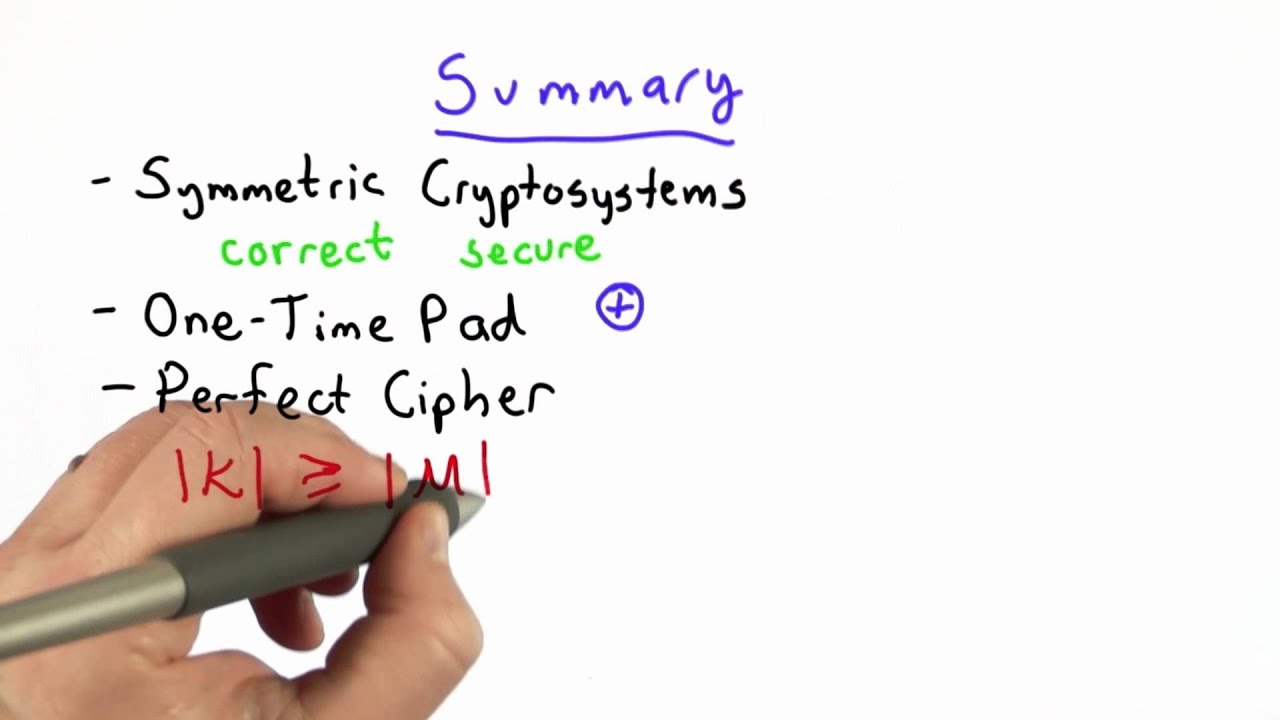 Summary
- Symmetric Cryptosystems
correct secure
- One-Time Pad ⊕
- Perfect Cipher
|K| ≥ |M|